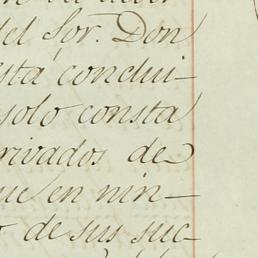 del Sor. Don
está conclui-
solo consta
rivados de
que en nin-
o de sus suc-